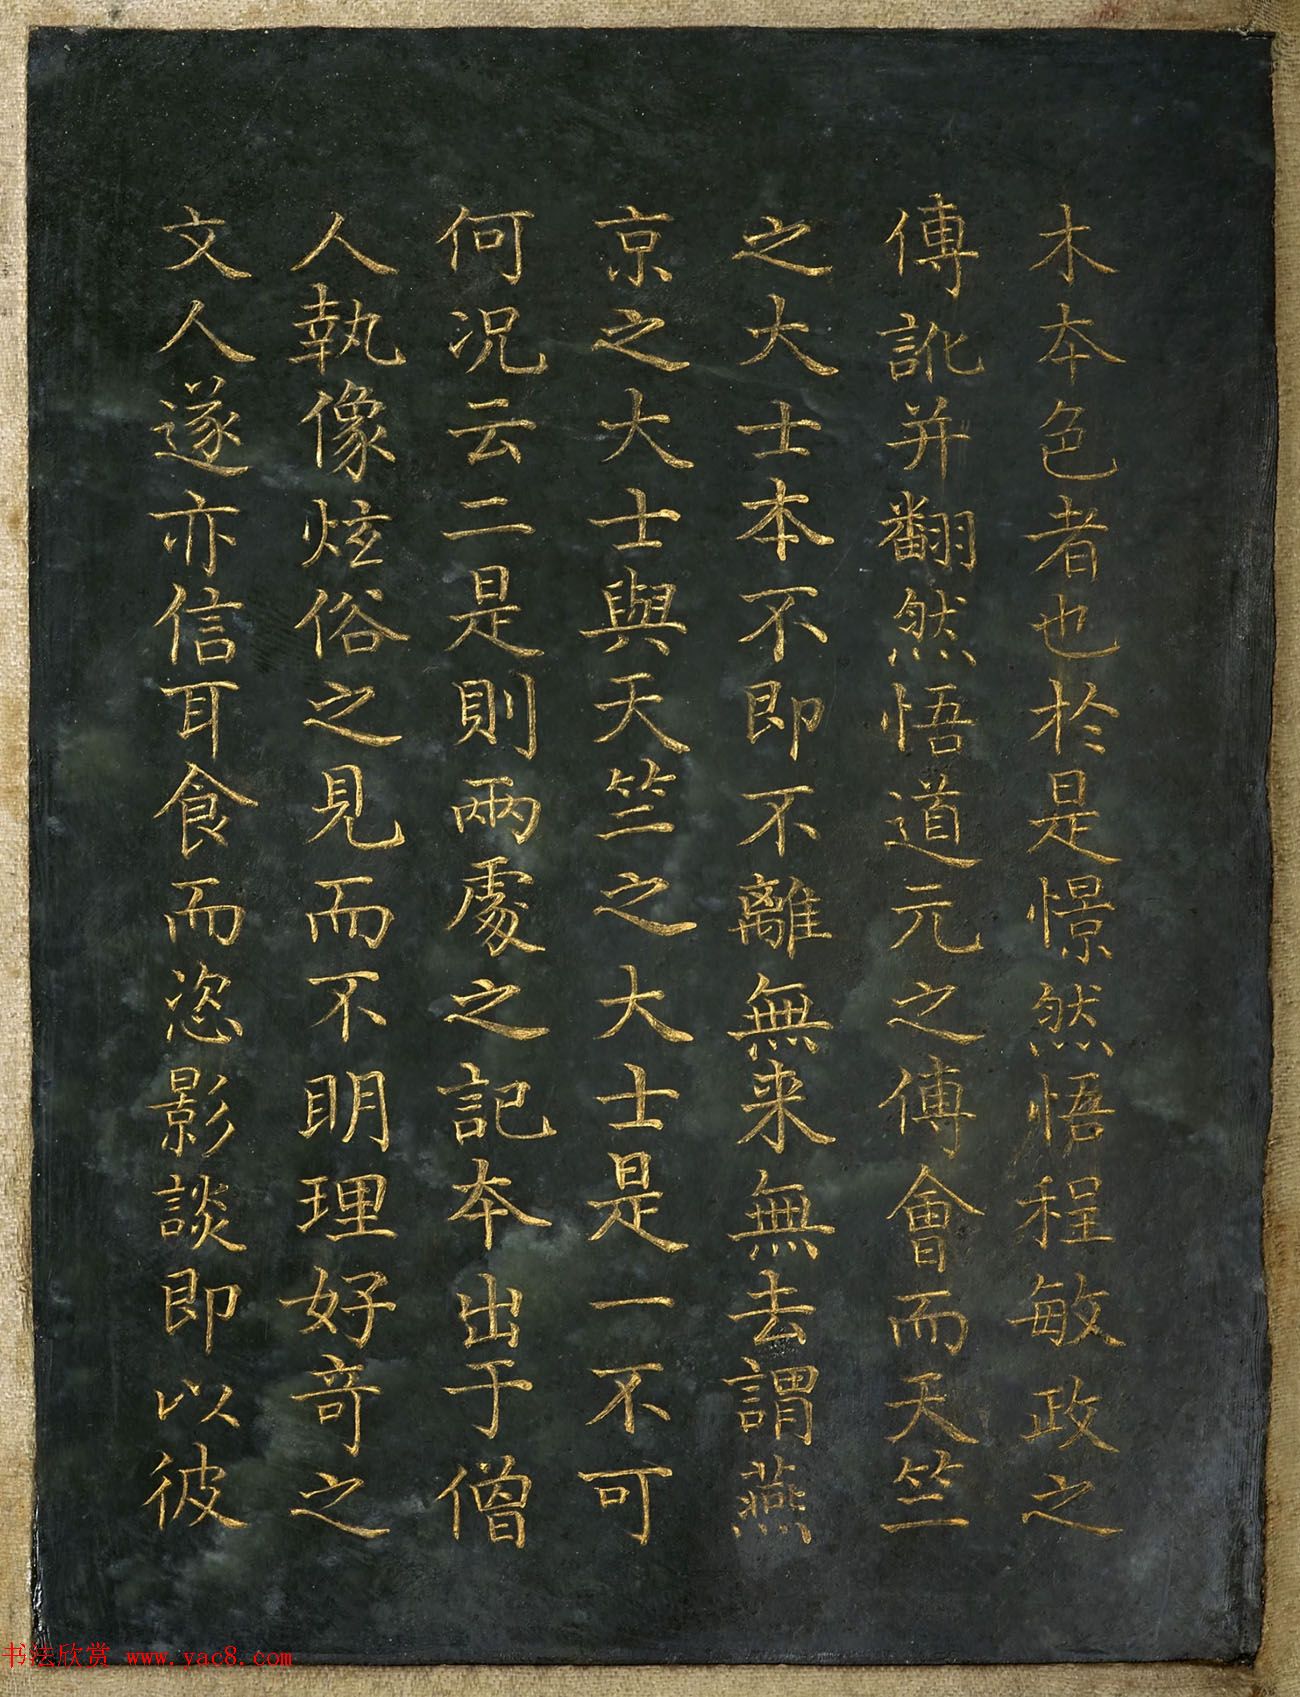 木本色者也於是憬然悟程敏政之
傳訛并翻然悟道元之傅會而天竺
之大士本不即不離無来無去謂燕
京之大士與天竺之大士是一不可
何況云二是則兩處之記本出于僧
人執像炫俗之見而不明理好奇之
文人遂亦信耳食而恣影談即以彼
书法欣赏 www.yac8.com